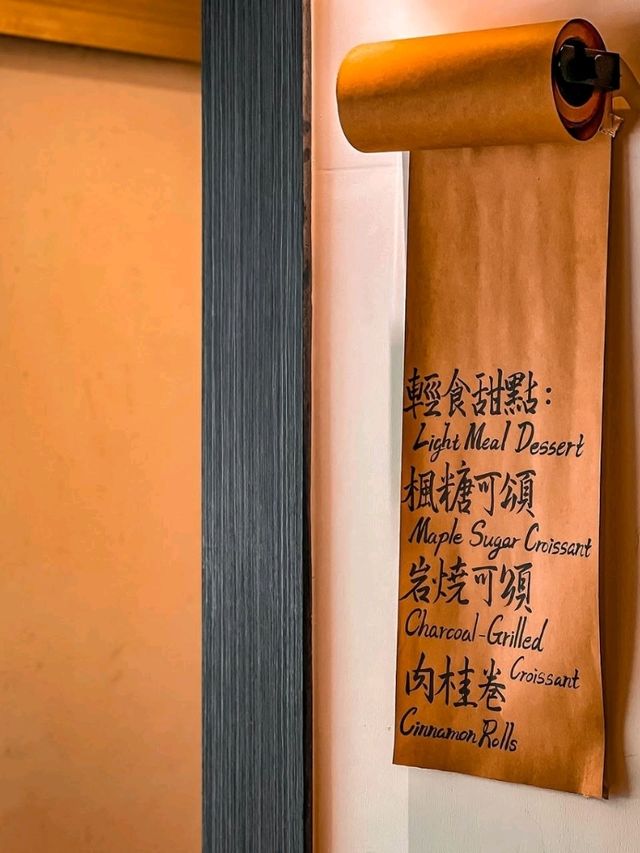 輕食甜點：
Light Meal Dessert
楓糖可頌
Maple Sugar Croissant
岩燒可頌
Charcoal-Grilled
Croissant
肉桂卷
Cinnamon Rolls